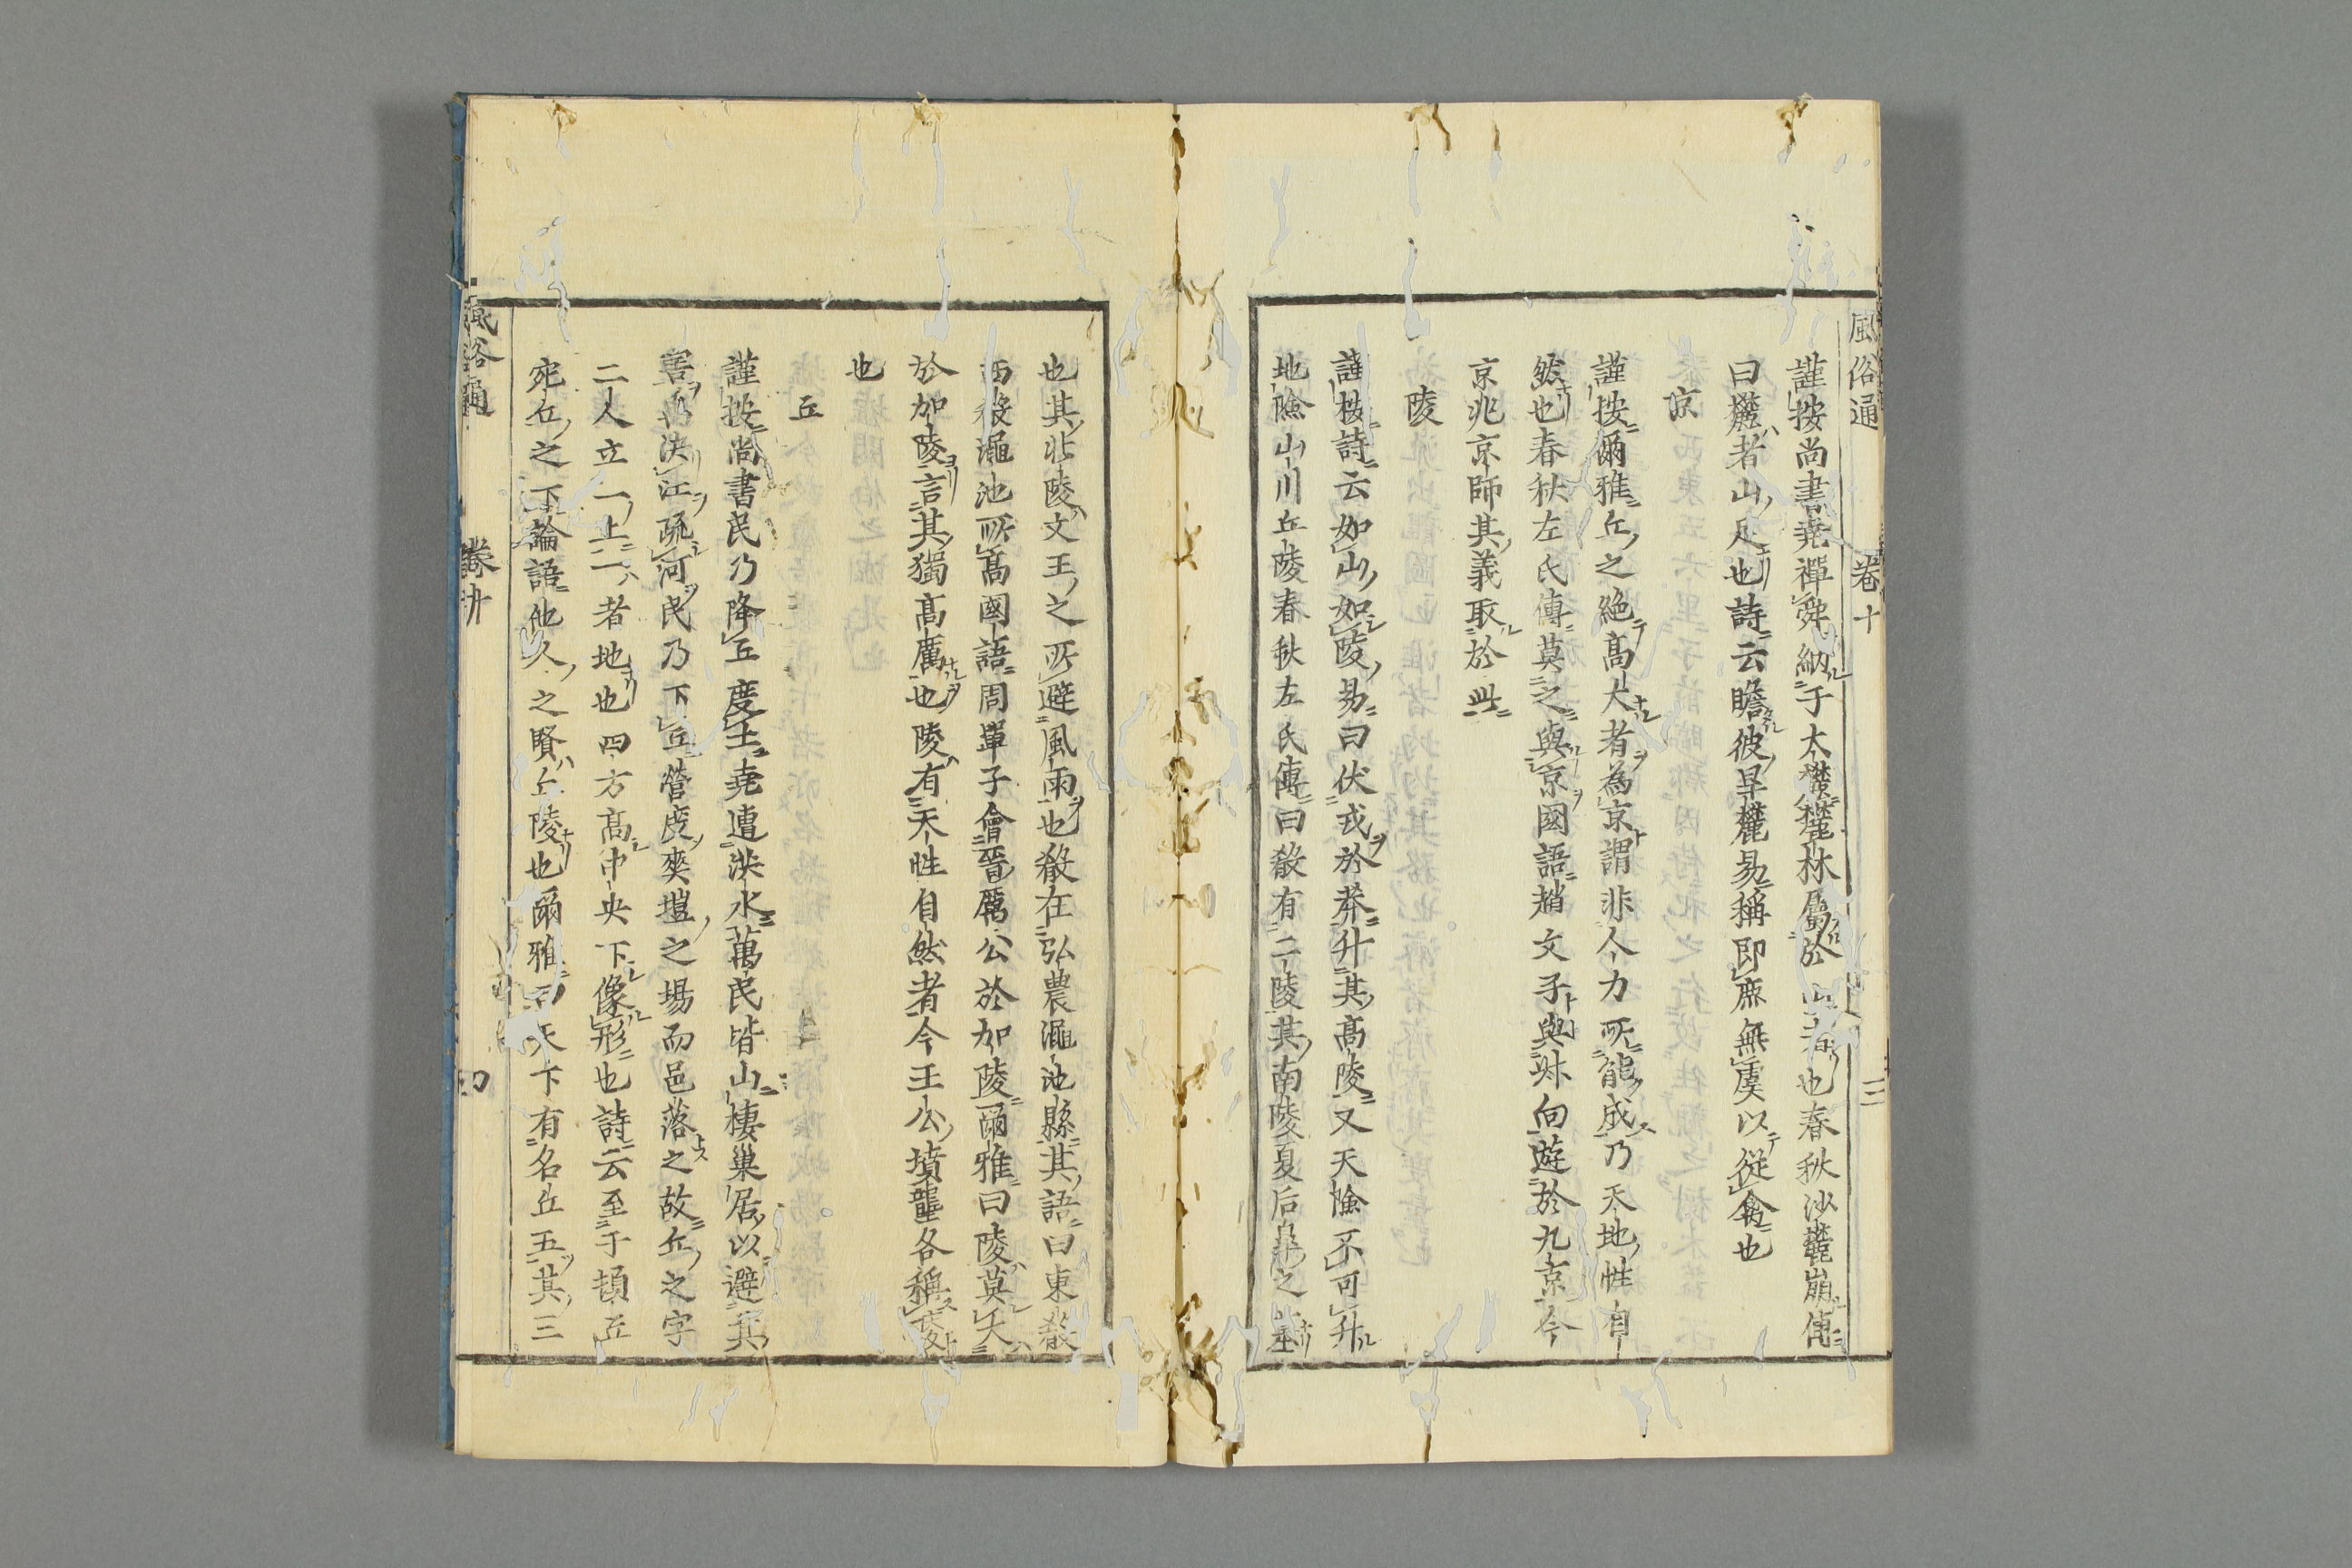 風俗通 卷十 三
謹按尚書堯禪舜納于太麓麓林屬於山者也春秋沙麓崩傳
曰麓者山足也詩云瞻彼旱麓易稱即鹿無虞以從禽也
京
謹按爾雅丘之絶高大者為京謂非人力所能成乃天地性自
然也春秋左氏傳莫之與京國語趙文子與叔向遊於九京今
京兆京師其義取於此
陵
謹按詩云如山如陵易曰伏戎於莽升其高陵又天險不可升
地險山川丘陵春秋左氏傳曰殽有二陵其南陵夏后臯之墓
也其北陵文王之所避風雨也殽在弘農澠池縣其語曰東殽
西殽澠池所高國語周單子會晉厲公於加陵爾雅曰陵莫大
於加陵言其獨高厲也陵有天性自然者今王公墳壟各稱陵
也
丘
謹按尚書民乃降丘度土堯遭洪水萬民皆山棲巢居以避其
害禹決江疏河民乃下丘營度爽塏之場而邑落之故丘之字
二人立一上一者地也四方高中央下像形也詩云至于頓丘
宛丘之下論語他人之賢丘陵也爾雅曰天下有名丘五其三
風俗通 卷十